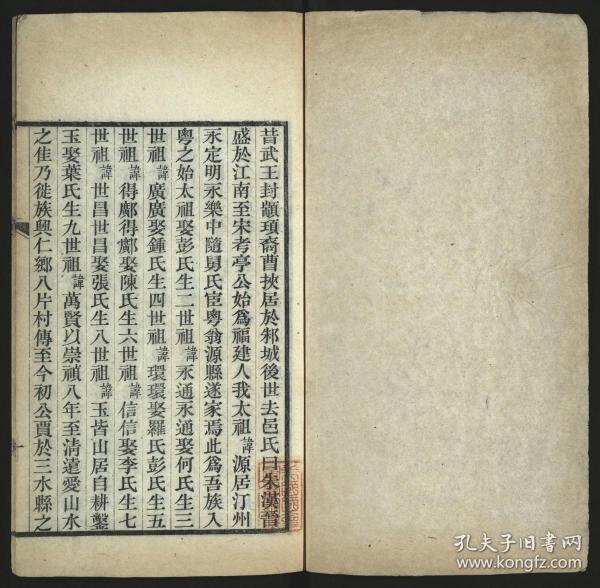 昔武王封顓頊裔曹挾居於邾城後世去邑氏曰朱漢晉
盛於江南至宋考亭公始為福建人我太祖諱源居汀州
永定明永樂中隨舅氏宦粵翁源縣遂家焉此為吾族入
粵之始太祖娶彭氏生二世祖諱永通永通娶何氏生三
世祖諱廣廣娶鍾氏生四世祖諱環環娶羅氏彭氏生五
世祖諱得鄺得鄺娶陳氏生六世祖諱信信娶李氏生七
世祖諱世昌世昌娶張氏生八世祖諱玉皆山居自耕鑿
玉娶葉氏生九世祖諱萬賢以崇禎八年至清遠愛山水
之佳乃徙族興仁鄉八片村傳至今初公賈於三水縣之
孔夫子旧书网
www.kongfz.com